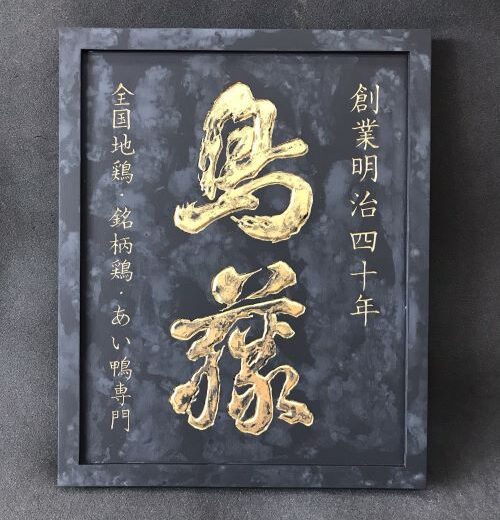 創業明治四十年
鳥藤
全国地鶏・銘柄鶏・あい鴨専門